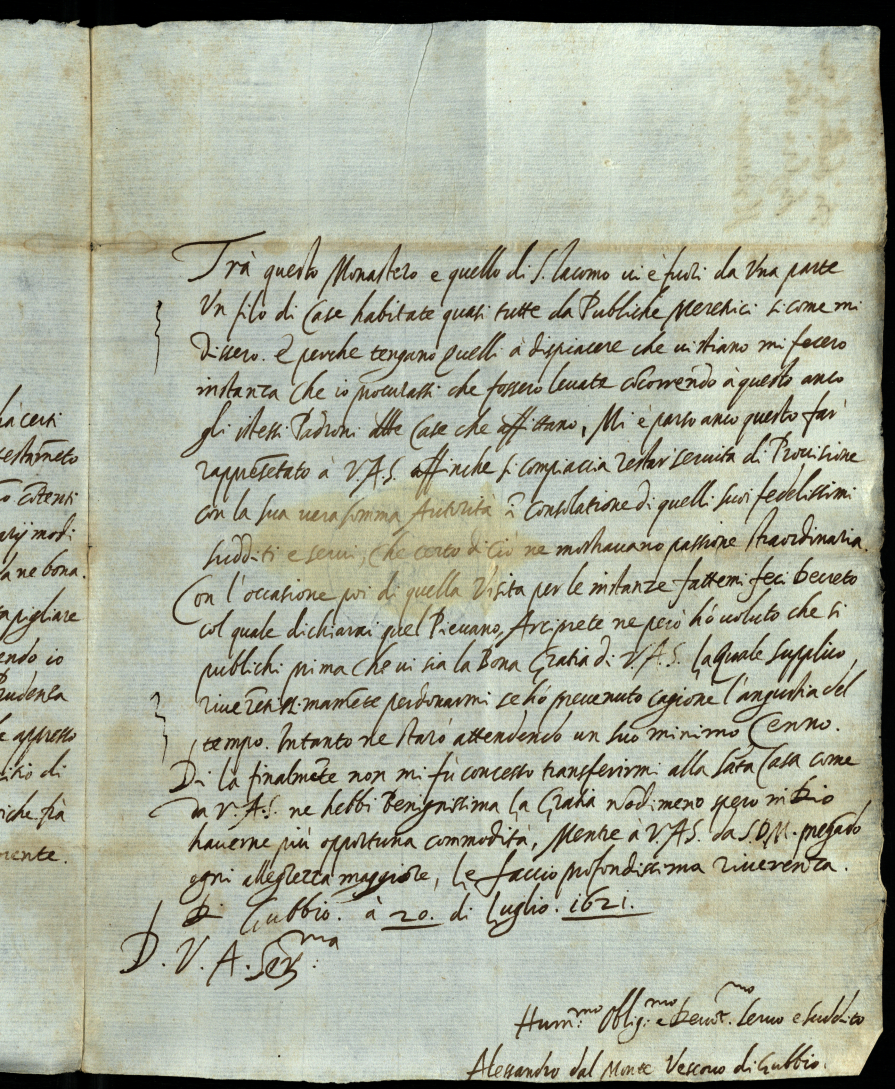 Trà questo Monastero e quello di S. Iacomo vi è fuori da Una parte
Un filo di Case habitate quasi tutte da Publiche Meretrici si come mi
dissero. E perche tengano quelli à dispiacere che vi stiano mi fecero
instanza che io procurassi che fossero levate cōcorrendo à questo anco
gli istessi Padroni delle Case che affittano, Mi è parso anco questo far
rappresētato à V.A.S. affinche si compiaccia restar servita di Provisione
con la sua vera somma Autorità ī consolatione di quelli suoi fedelissimi
sudditi e servi, che certo di Ciò ne mostravano passione straordinaria.
Con l'occasione poi di quella Visita per le instanze fattemi feci Decreto
col quale dichiarai quel Pievano, Arciprete ne però hò voluto che si
publichi prima che vi sia la Bona Gratia di V.A.S. la quale supplico
riverētissimamēte perdonarmi se hò prevenuto cagione l'angustia del
tempo. Intanto ne starò attendendo un suo minimo Cenno.
Di là finalmēte non mi fù concesso transferirmi alla Sāta Casa come
da V.A.S. ne hebbi benignissima la Gratia nōdimeno spero in Dio
haverne più opportuna commodità, Mentre à V.A.S. da S.D.M. pregādo
ogni allegrezza maggiore, le faccio profondissima riverenza.
Di Gubbio. à 20. di Luglio. 1621.
D. V. A. Ser:ma
Hum:mo Oblig:mo e Devot:mo Servo e suddito
Alessandro dal Monte Vescovo di Gubbio.
hà certi
testamēto
cōtenti
varij modi
la ne bona.
pigliare
endo io
Prudenza
appresso
di
che frà
mente.